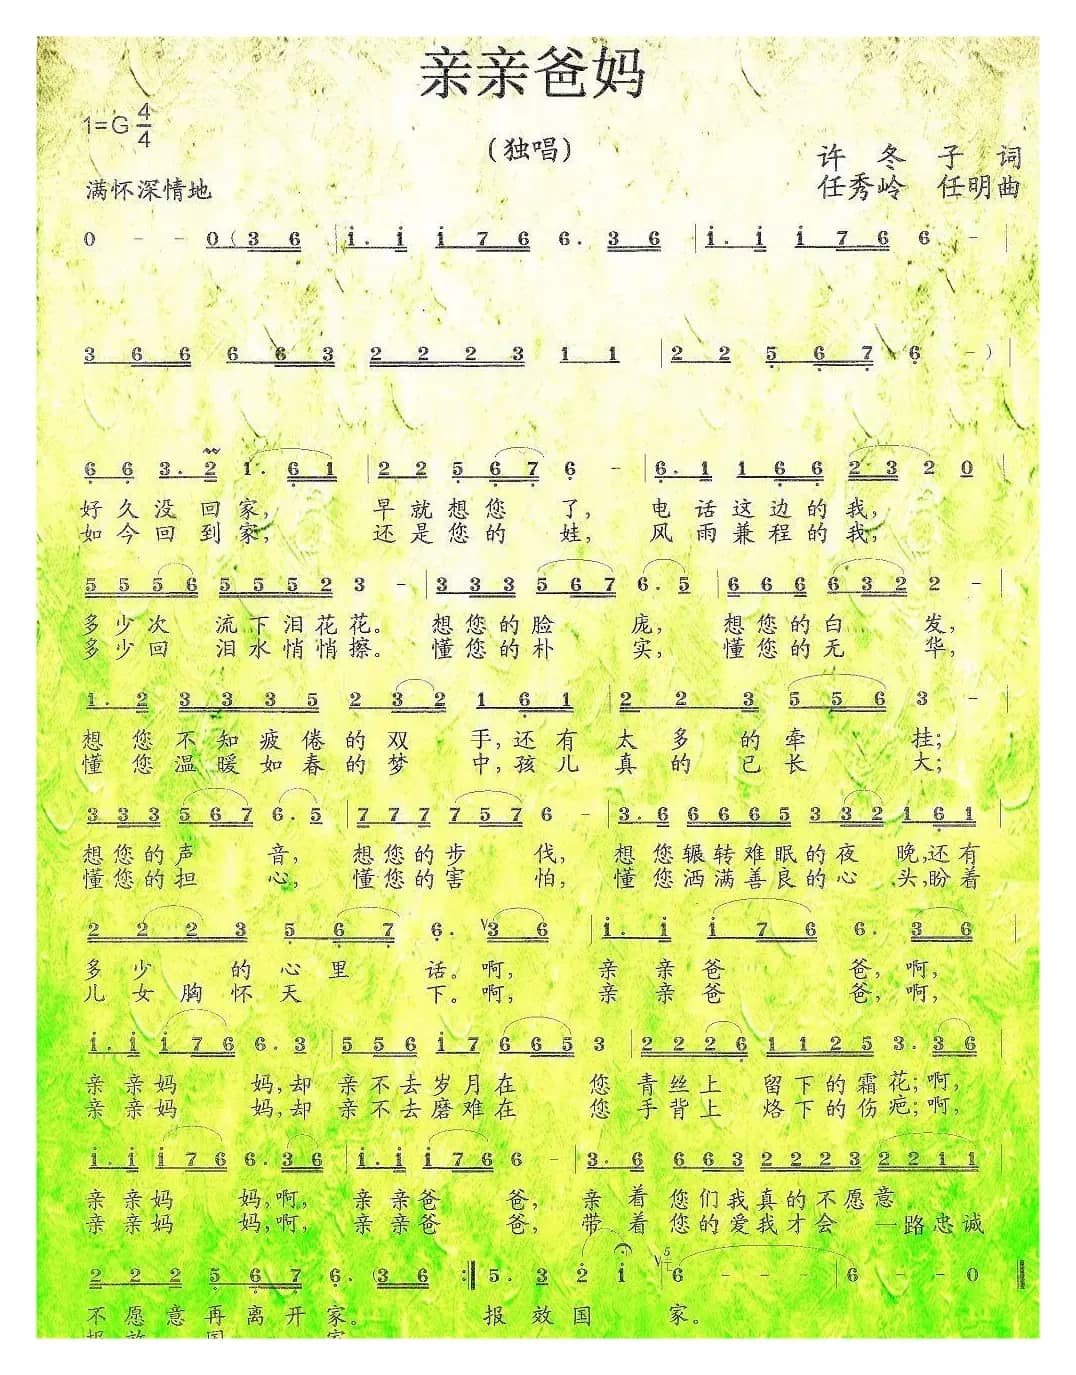 亲亲爸妈
1=G 4/4
（独唱）
许冬子 词
满怀深情地
任秀岭 任明曲
0 - - 0 ( 3 6 | i . i i 7 6 6 . 3 6 | i . i i 7 6 6 - |
3 6 6 6 6 3 2 2 2 3 1 1 | 2 2 5 6 7 6 - ) |
6 6 3 . 2 1 . 6 1 | 2 2 5 6 7 6 - | 6 . 1 1 6 6 2 3 2 0 |
好久没回家， 早就想您了， 电话这边的我，
如今回到家， 还是您的娃， 风雨兼程的我，
5 5 5 6 5 5 5 2 3 - | 3 3 3 5 6 7 6 . 5 | 6 6 6 6 3 2 2 - |
多少次 流下泪花花。 想您的脸庞， 想您的白发，
多少回 泪水悄悄擦。 懂您的朴实， 懂您的无华，
1 . 2 3 3 3 5 2 3 2 1 6 1 | 2 2 2 3 5 5 6 3 - |
想您不知疲倦的双手，还有太多的牵挂；
懂您温暖如春的梦中，孩儿真的已长大；
3 3 3 5 6 7 6 . 5 | 7 7 7 7 5 7 6 - | 3 . 6 6 6 6 5 3 3 2 1 6 1 |
想您的声音， 想您的步伐， 想您辗转难眠的夜晚，还有
懂您的担心， 懂您的害怕， 懂您洒满善良的心头，盼着
2 2 2 3 5 6 7 6 . V 3 6 | i . i i 7 6 6 . 3 6 |
多少的心里话。啊， 亲亲爸爸，啊，
儿女胸怀天下。啊， 亲亲爸爸，啊，
i . i i 7 6 6 . 3 | 5 5 6 i 7 6 6 5 3 | 2 2 2 6 1 1 2 5 3 . 3 6 |
亲亲妈妈，却亲不去岁月在您青丝上留下的霜花；啊，
亲亲妈妈，却亲不去磨难在您手背上烙下的伤疤；啊，
i . i i 7 6 6 . 3 6 | i . i i 7 6 6 - | 3 . 6 6 6 3 2 2 2 3 2 2 1 1 |
亲亲妈妈，啊， 亲亲爸爸，亲着您们我真的不愿意
亲亲妈妈，啊， 亲亲爸爸，带着您的爱我才会 一路忠诚
2 2 2 5 6 7 6 . ( 3 6 :| 5 . 3 2 i V 5 i | 6 - - - | 6 - - 0 |
不愿意再离开家。 报效国家。
报效国家